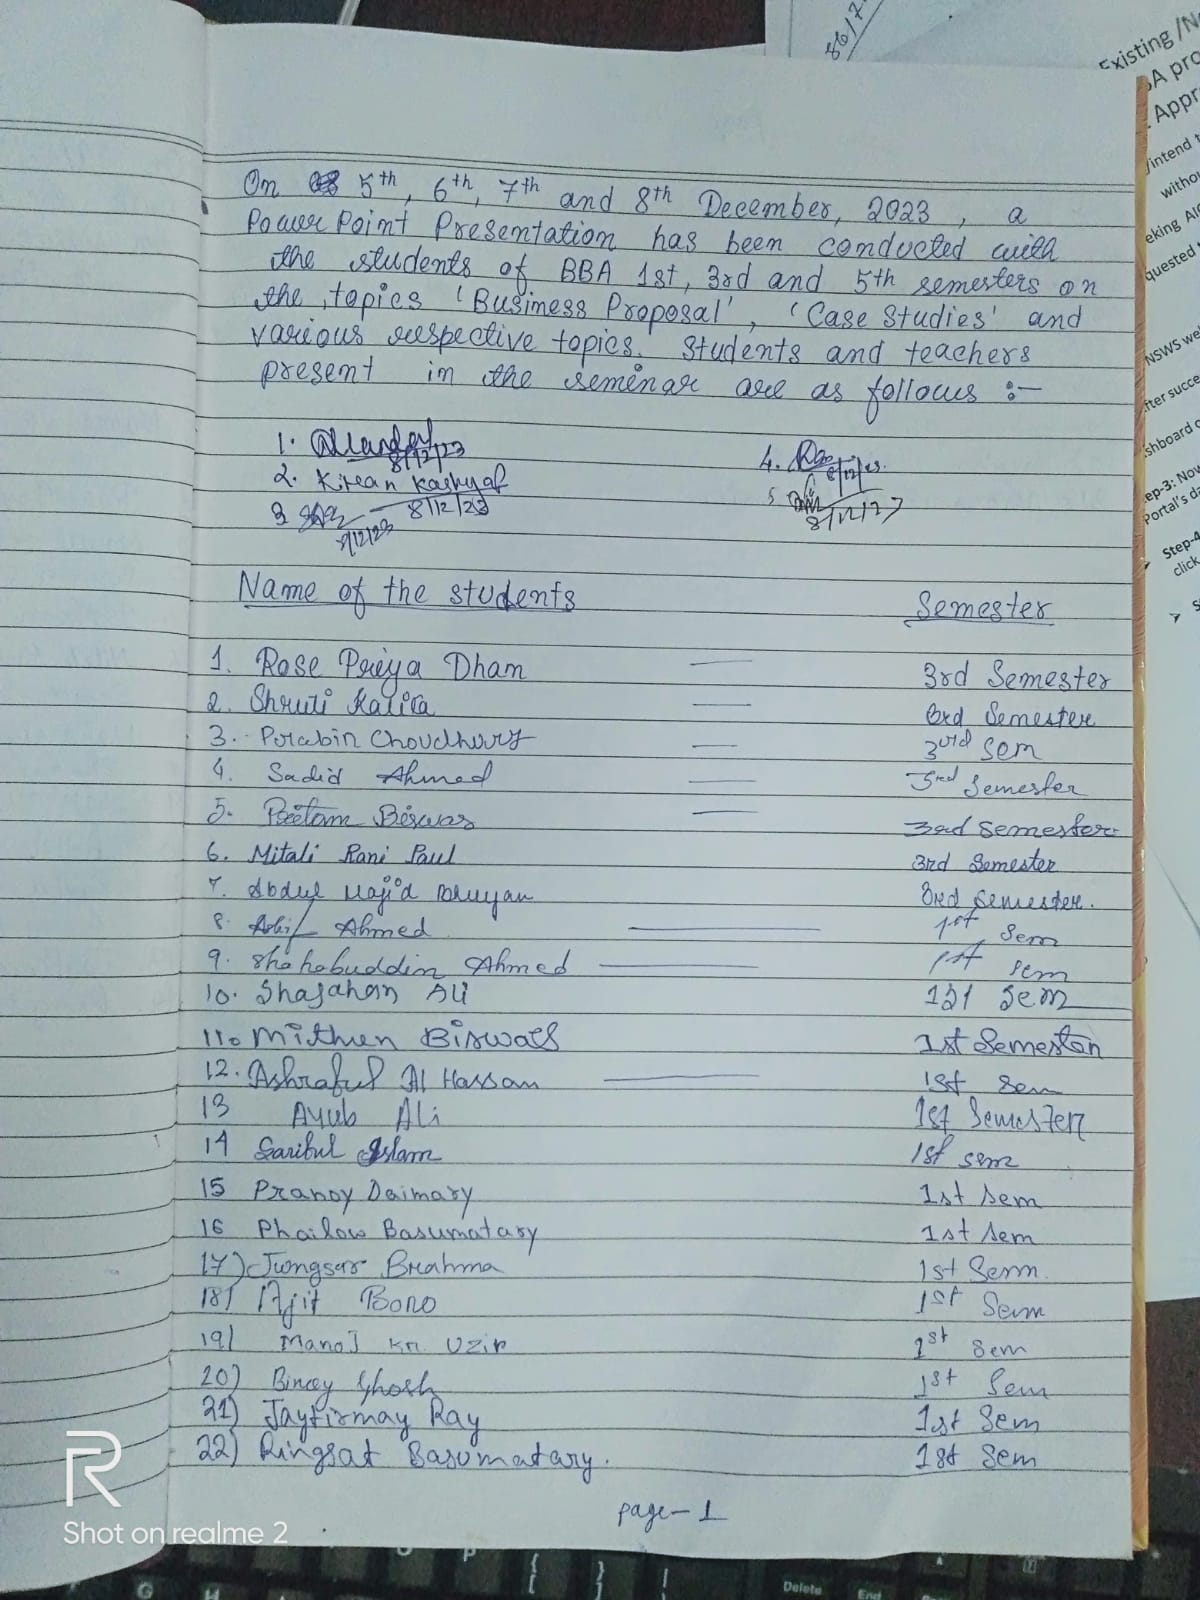 On 5th, 6th, 7th and 8th December, 2023, a
Power Point Presentation has been conducted with
the students of BBA 1st, 3rd and 5th semesters on
the topics 'Business Proposal', 'Case Studies' and
various respective topics. Students and teachers
present in the seminar are as follows :-
1. 8/12/23
2. Kiran Kashyap 8/12/23
3 8/12/23
4. 8/12/23.
5. 8/12/23
Name of the students Semester
1. Rose Priya Dham — 3rd Semester
2. Shruti Kalita — 3rd Semester
3. Prabin Choudhury — 3rd Sem
4. Sadid Ahmed — 3rd Semester
5. Pritam Biswas — 3rd Semester
6. Mitali Rani Paul 3rd Semester
7. Abdul Majid Bhuyan 3rd Semester.
8. Ahmed — 1st Sem
9. Shahabuddin Ahmed — 1st Sem
10. Shajahan Ali 1st Sem
11. Mithun Biswas 1st Semester
12. Ashraful Al Hassan — 1st Sem
13 Ayub Ali 1st Semester
14 Saribul Islam 1st sem
15 Pranoy Daimary 1st Sem
16 Phailow Basumatary 1st Sem
17) Jungsar Brahma 1st Sem
18) Ajit Boro 1st Sem
19) Manoj Kr. Uzir 1st Sem
20) Ghosh 1st Sem
21) Jaytirmay Ray 1st Sem
22) Ringsat Basumatary. 1st Sem
page-1
R
Shot on realme 2
56/7
Existing /N
A pro
Appr
/intend t
withou
eking
quested
NSWS we
fter succe
shboard o
ep-3: Now
Portal's da
Step-4
click
G
H
P
{
[
}
]
Delete
End